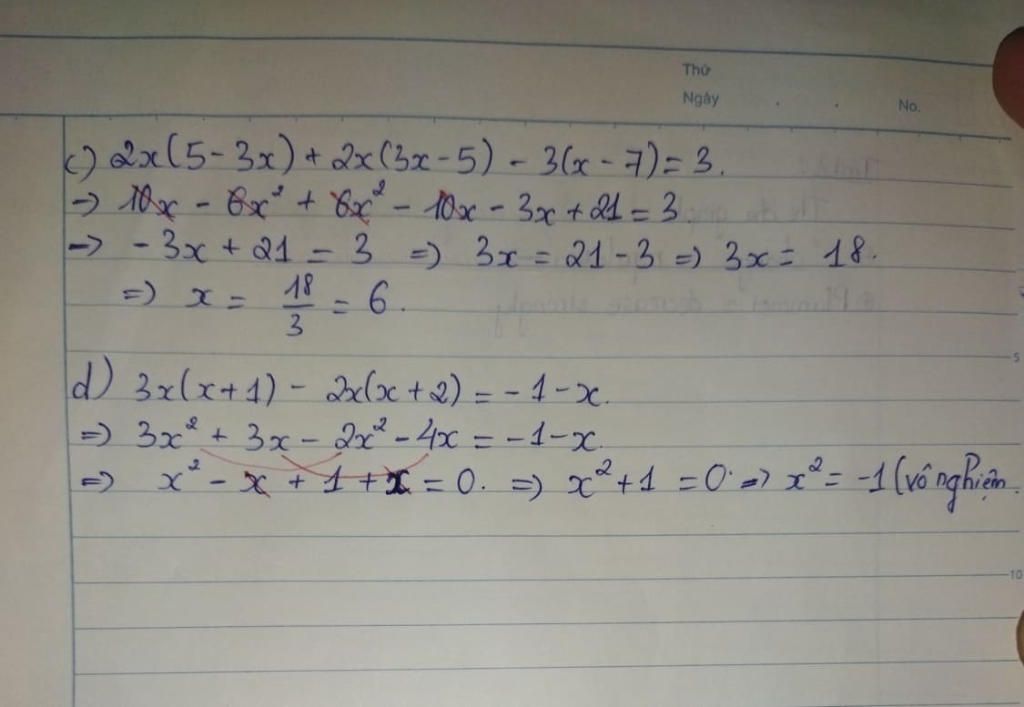 Thứ
Ngày . . No.
c) 2x(5 - 3x) + 2x(3x - 5) - 3(x - 7) = 3.
→ 10x - 6x² + 6x² - 10x - 3x + 21 = 3
→ - 3x + 21 = 3 ⇒ 3x = 21 - 3 ⇒ 3x = 18.
⇒ x = 18/3 = 6.
5
d) 3x(x + 1) - 2x(x + 2) = - 1 - x.
⇒ 3x² + 3x - 2x² - 4x = - 1 - x.
⇒ x² - x + 1 + x = 0. ⇒ x² + 1 = 0 ⇒ x² = -1 (vô nghiệm.
10